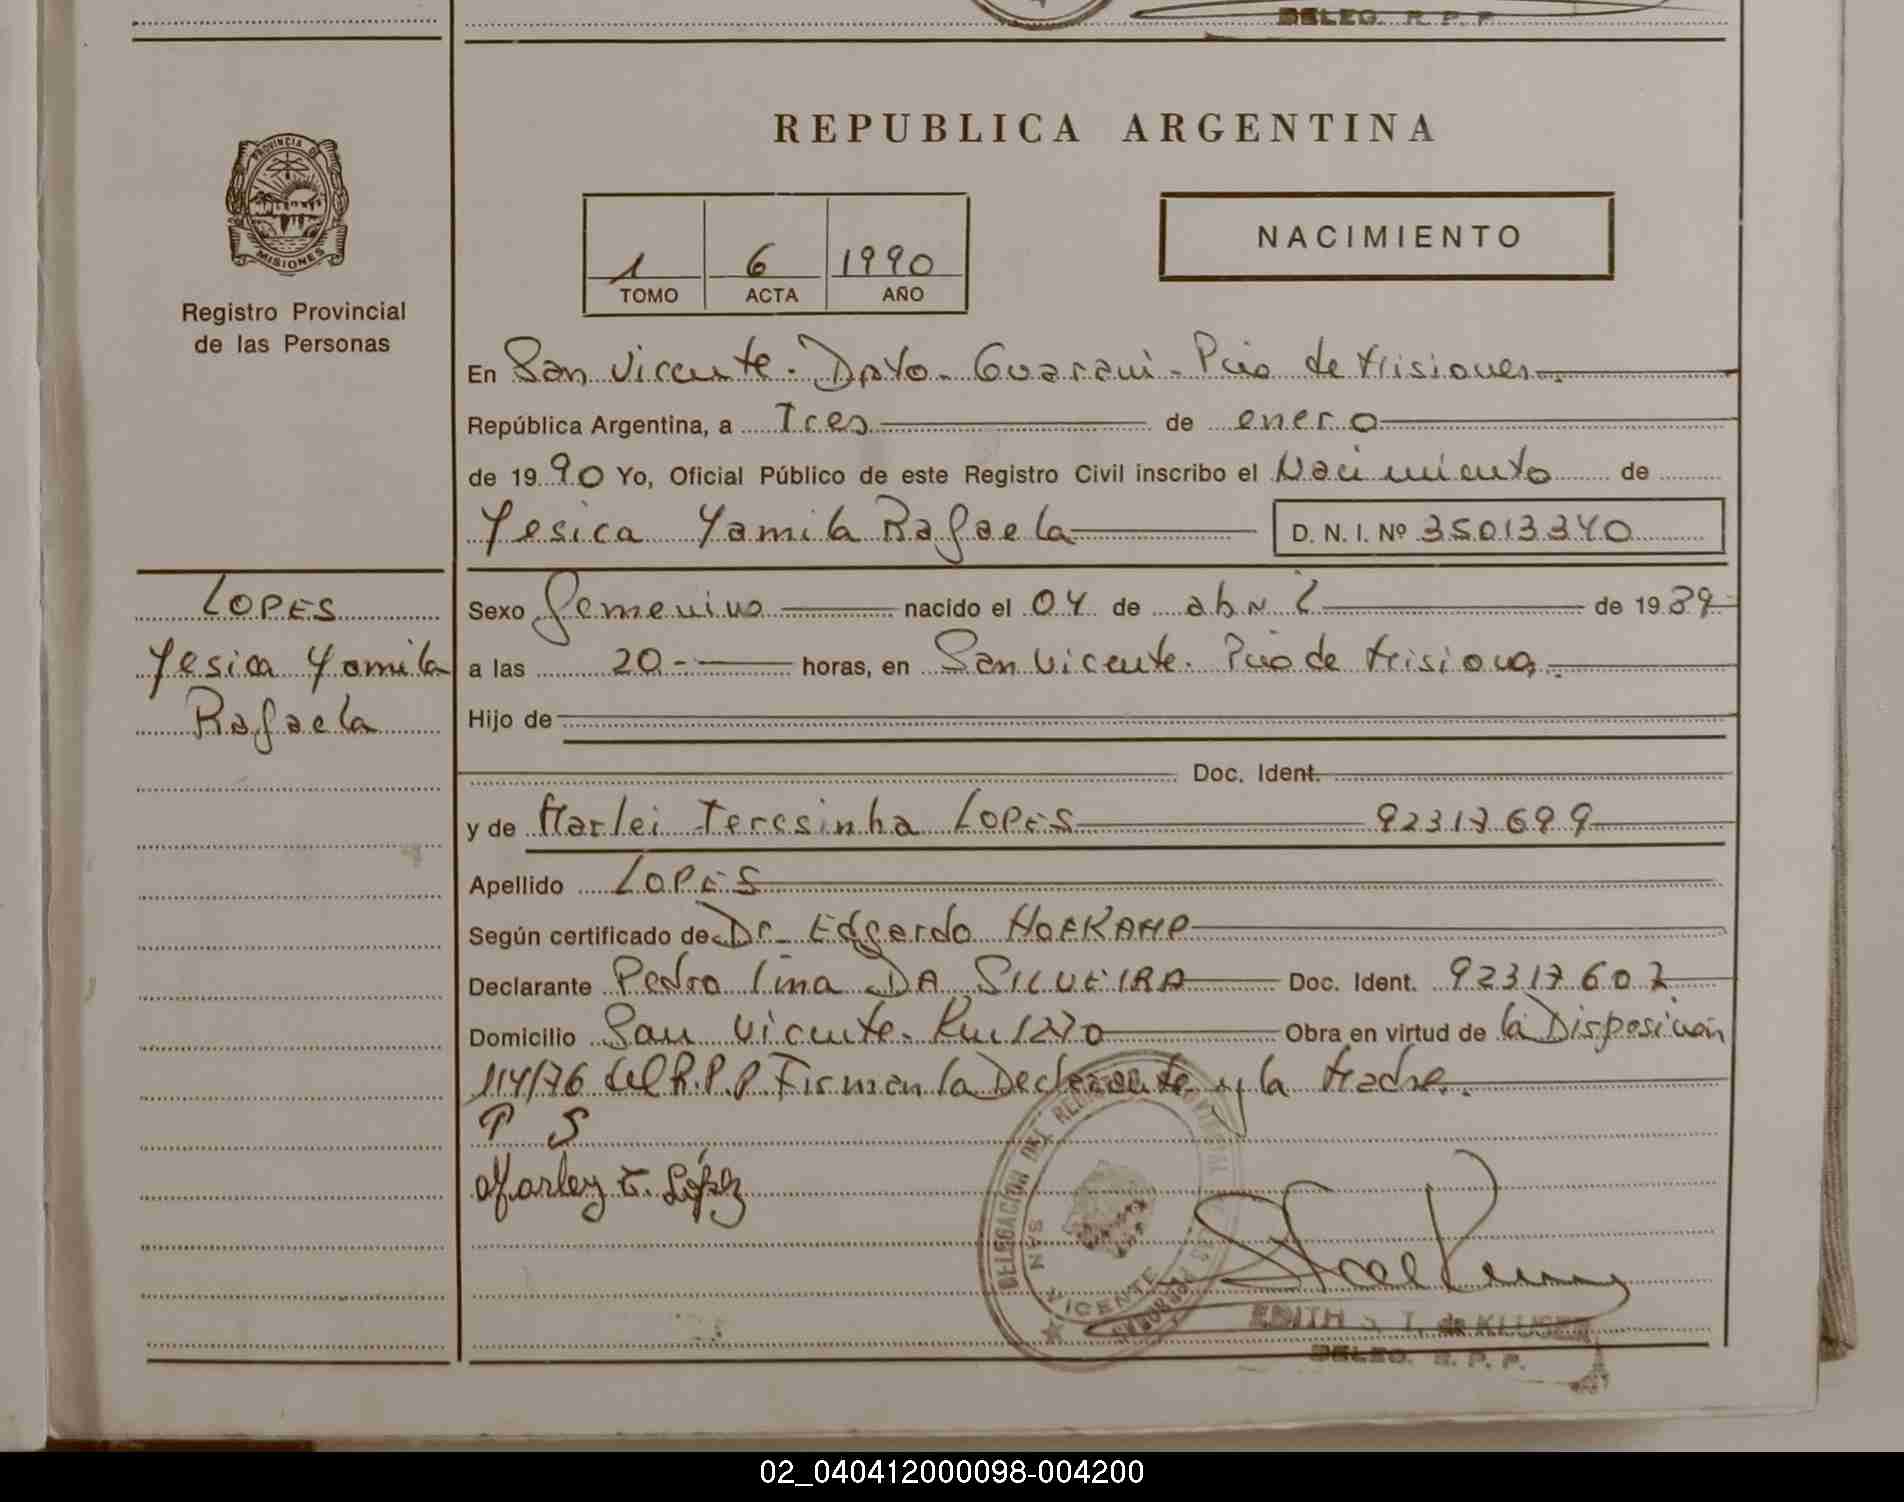 DELEG. R. P. P.
REPUBLICA ARGENTINA
PROVINCIA DE
MISIONES
NACIMIENTO
1 6 1990
TOMO ACTA AÑO
Registro Provincial
de las Personas
En San Vicente. Dpto. Guarani. Pcia de Misiones.
República Argentina, a Tres de enero
de 1990 Yo, Oficial Público de este Registro Civil inscribo el Nacimiento de
Yesica Yamila Rafaela D. N. I. Nº 35013340
LOPES
Yesica Yamila
Rafaela
Sexo femenino nacido el 04 de abril de 1989
a las 20.- horas, en San Vicente. Pcia de Misiones.
Hijo de
Doc. Ident.
y de Marlei Teresinha LOPES 92317699
Apellido LOPES
Según certificado de Dr. Edgardo HOFKAMP
Declarante Pedro lima DA SILVEIRA Doc. Ident. 92317607
Domicilio San Vicente. Km 1270 Obra en virtud de la Disposición
114/76 del R.P.P. Firman la Declarante y la Madre.
P S
Marley T. López
DELEGACION DEL
SAN VICENTE
EDITH T. de KLUSER
DELEG. R. P. P.
02_040412000098-004200